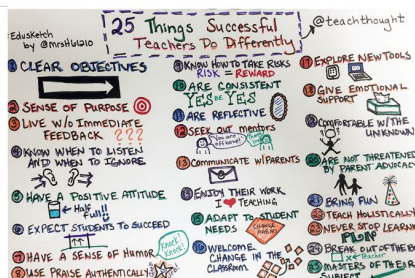 25 Things Successful
Teachers Do Differently
@teachthought
#Edusketch
by @mrsH61210
1 CLEAR OBJECTIVES
2 SENSE OF PURPOSE
3 LIVE W/O IMMEDIATE
FEEDBACK ???
4 KNOW WHEN TO LISTEN
AND WHEN TO IGNORE
5 HAVE A POSITIVE ATTITUDE
Half
Full!!
6 EXPECT STUDENTS TO SUCCEED
7 HAVE A SENSE OF HUMOR
Knock!
Knock!
8 USE PRAISE AUTHENTICALLY
9 KNOW HOW TO TAKE RISKS
RISK = REWARD
10 ARE CONSISTENT
YES BE YES
11 ARE REFLECTIVE
12 SEEK OUT mentors
13 COMMUNICATE W/PARENTS
15 ENJOY THEIR WORK
I ♥ TEACHING
ADAPT TO STUDENT
NEEDS
CHANGE
AHEAD
16 WELCOME
CHANGE IN THE
CLASSROOM
17 EXPLORE NEW TOOLS
18 GIVE EMOTIONAL
SUPPORT
COMFORTABLE W/THE
UNKNOWN
20 ARE NOT THREATENED
BY PARENT ADVOCACY
21 BRING FUN
22 TEACH HOLISTICALLY
23 NEVER STOP LEARNING
24 BREAK OUT OF THE
Teacher
MASTERS OF THEIR